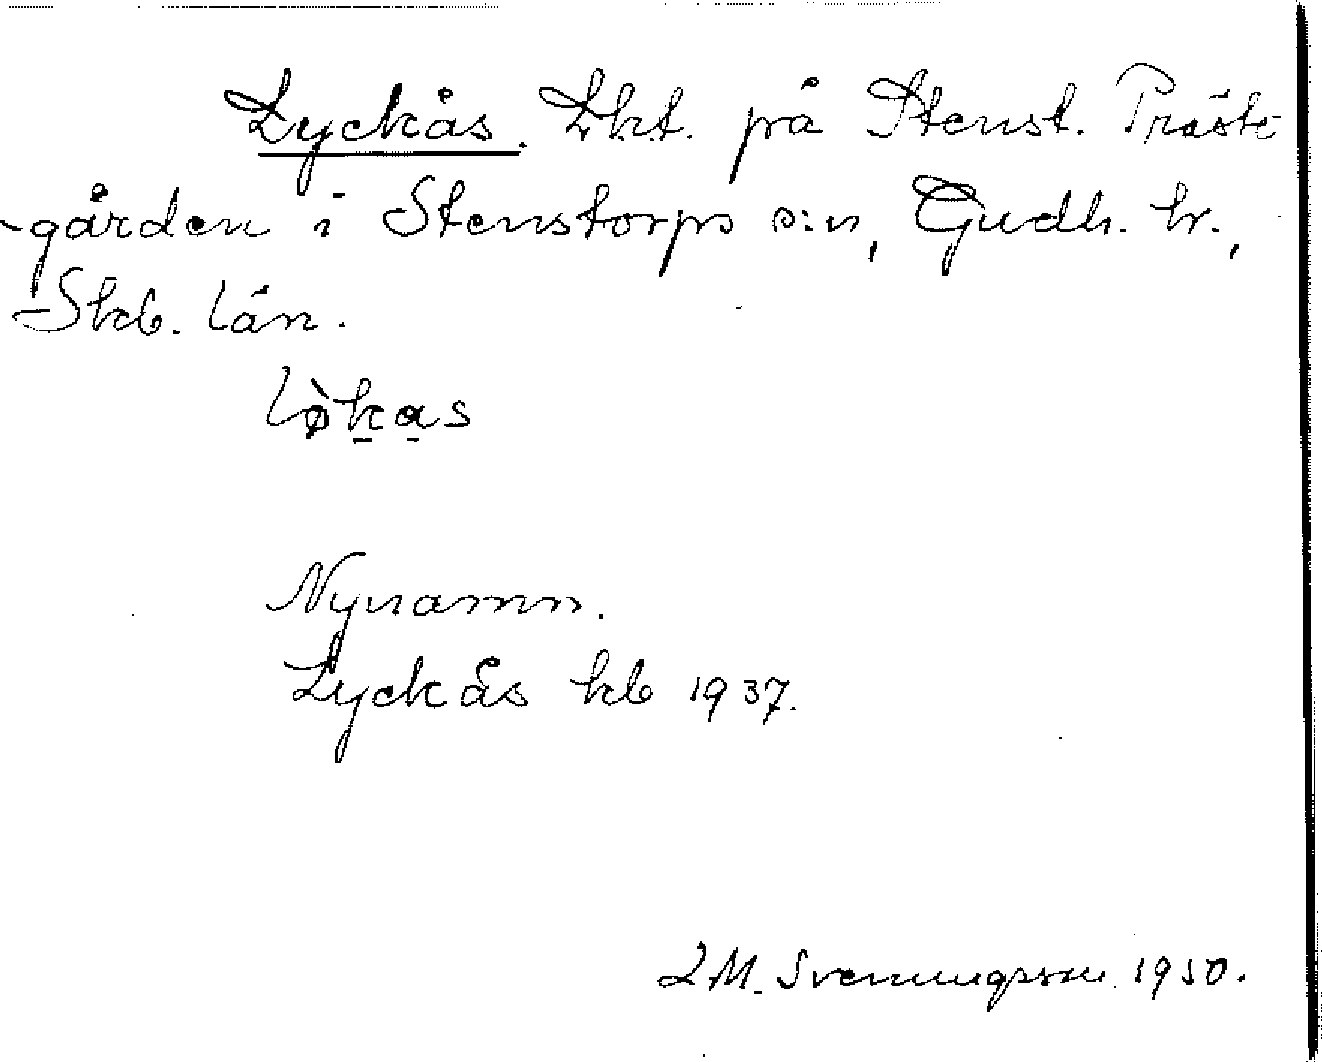 Lyckås. Lht. på Stenst. Präste-
gården i Stenstorps s:n, Gudh. hr.,
Skb. län.
lø̀k̠a̠s
Nynamn.
Lyckås kb 1937.
L M. Svenungsson 1950.